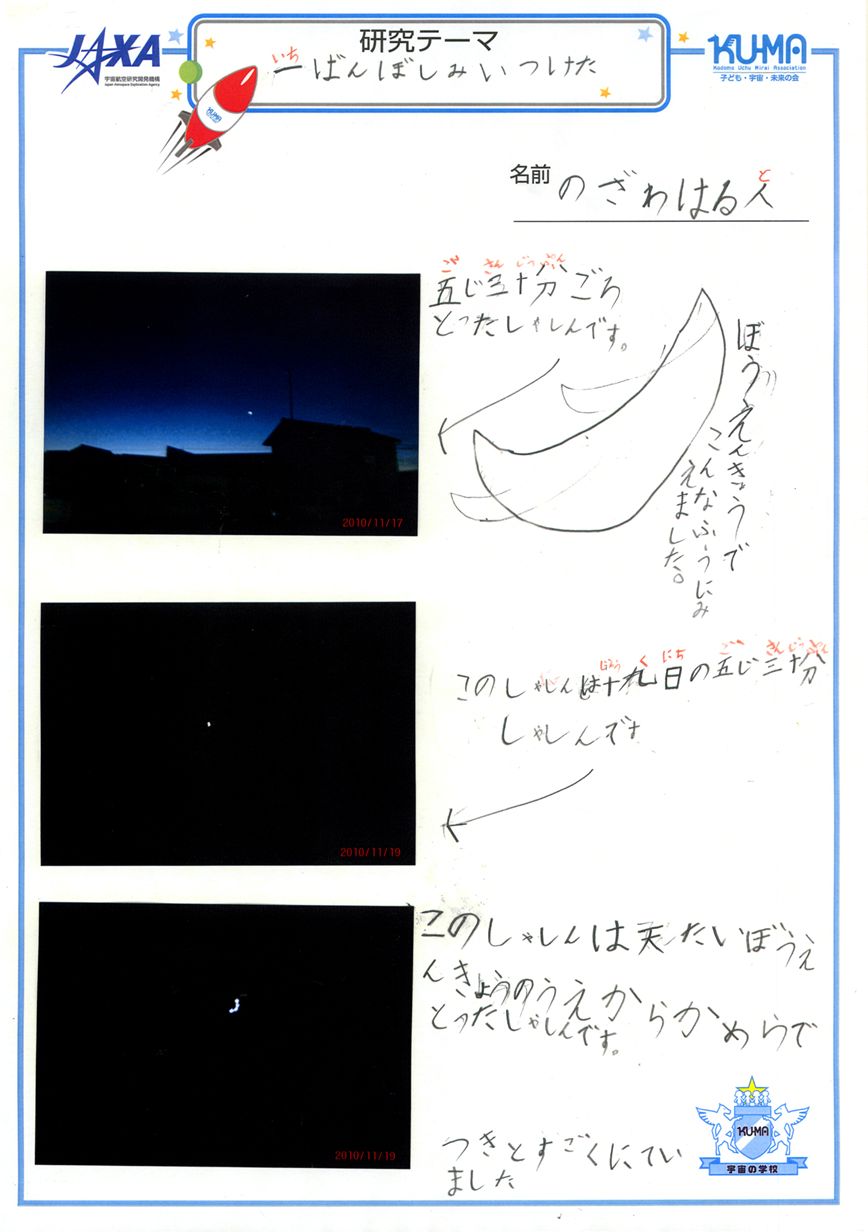 JAXA
宇宙航空研究開発機構
Japan Aerospace Exploration Agency
研究テーマ
いち
一ばんぼしみいつけた
KUMA
KU-MA
Kodomo Uchu Mirai Association
子ども・宇宙・未来の会
名前 のざわはる人
と
ご さん じゅっぷん
五じ三十分ごろ
とったしゃしんです。
ぼうえんきょうで
こんなふうにみ
えました。
2010/11/17
じゅう く にち ご さんじゅっぷん
このしゃしんは十九日の五じ三十分
しゃしんです
2010/11/19
このしゃしんは天たいぼうえ
んきょうのうえからかめらで
とったしゃしんです。
2010/11/19
つきとすごくにてい
ました
KU-MA
宇宙の学校